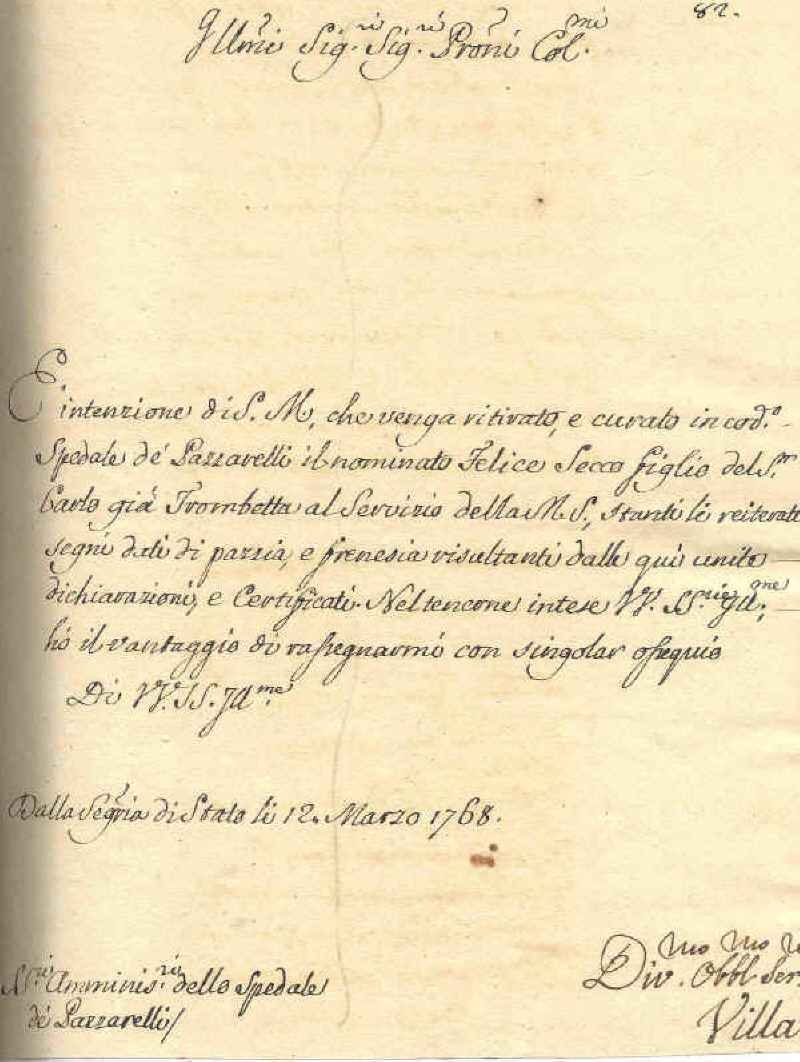 82.
Illmi Sig.ri Sig.ri Proñi Col.mi
È intenzione di S. M., che venga ritirato, e curato in cod.o
Spedale de' Pazzarelli il nominato Felice Secco figlio del S.r
Carlo già Trombetta al Servizio della M. S., stanti li reiterati
segni dati di pazzia, e frenesia risultanti dalle qui unite
dichiarazioni, e Certificati. Nel tenerne intese VV. SS.rie Ill.me,
hò il vantaggio di rassegnarmi con singolar ossequio
Di VV. SS. Ill.me
Dalla Segria di Stato li 12. Marzo 1768.
SS.ri Amminis.ri dello Spedale
de' Pazzarelli/
Div.mo Obbl.mo Ser
Villa